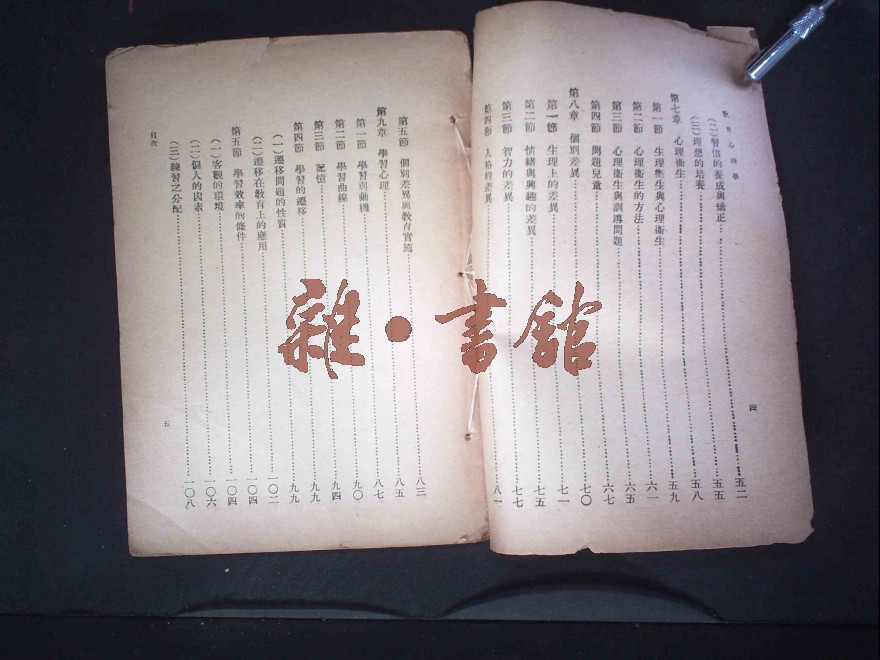 教育心理學
(二)習慣的養成與矯正……五二
(三)理想的培養……五五
第七章 心理衞生……五八
第一節 生理衞生與心理衞生……五九
第二節 心理衞生的方法……六一
第三節 心理衞生與訓導問題……六五
第四節 問題兒童……六七
第八章 個別差異……七〇
第一節 生理上的差異……七一
第二節 情緒與興趣的差異……七五
第三節 智力的差異……七七
第四節 人格的差異……八一
四
第五節 個別差異與教育實施……八三
第九章 學習心理……八五
第一節 學習與動機……八七
第二節 學習曲線……九〇
第三節 記憶……九四
第四節 學習的遷移……九九
(一)遷移問題的性質……九九
(二)遷移在教育上的應用……一〇二
第五節 學習效率的條件……一〇四
(一)客觀的環境……一〇四
(二)個人的因素……一〇六
(三)練習之分配……一〇八
目次
五
雜·書館